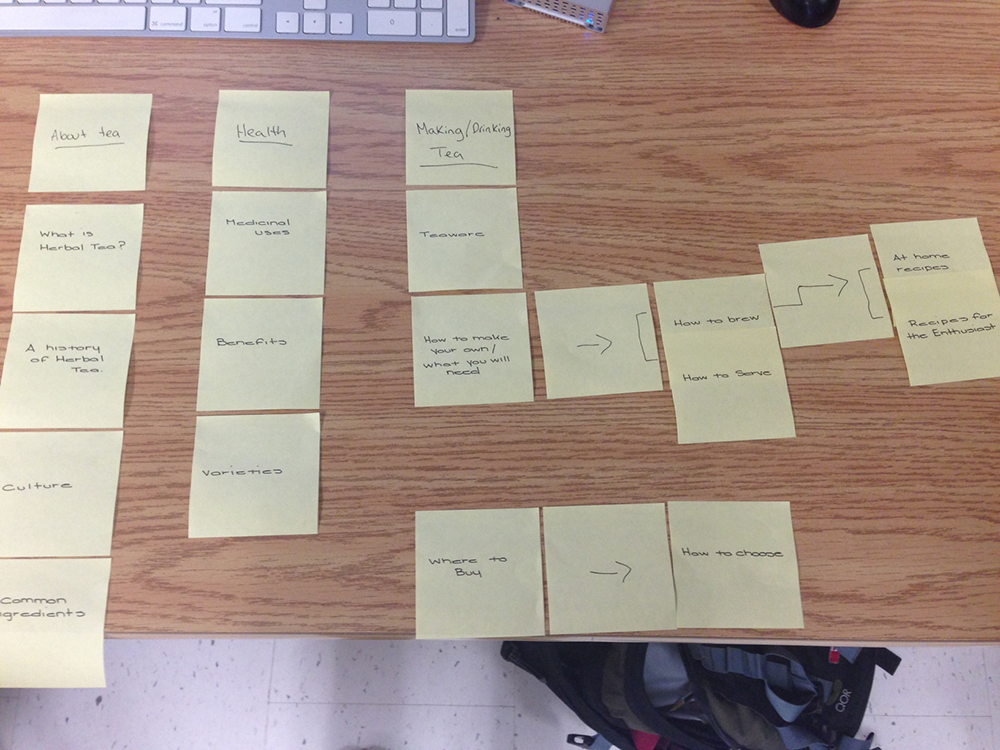 About tea
What is
Herbal Tea?
A history
of Herbal
Tea.
Culture
Common
gredients
Health
Medicinal
uses
Benefits
Varieties
Making/Drinking
Tea
Teaware
How to make
your own/
what you will
need
→ [
How to brew
How to Serve
→ [
At home
recipes
Recipes for
the Enthusiast
Where to
Buy
→
How to choose
command
option
control
enter